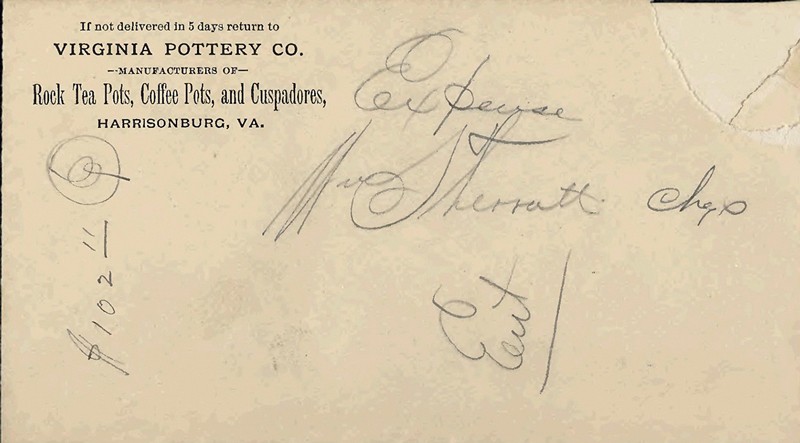 If not delivered in 5 days return to
VIRGINIA POTTERY CO.
--MANUFACTURERS OF--
Rock Tea Pots, Coffee Pots, and Cuspadores,
HARRISONBURG, VA.
Expense
Wm Sherratt chgs
Ent
$102 11